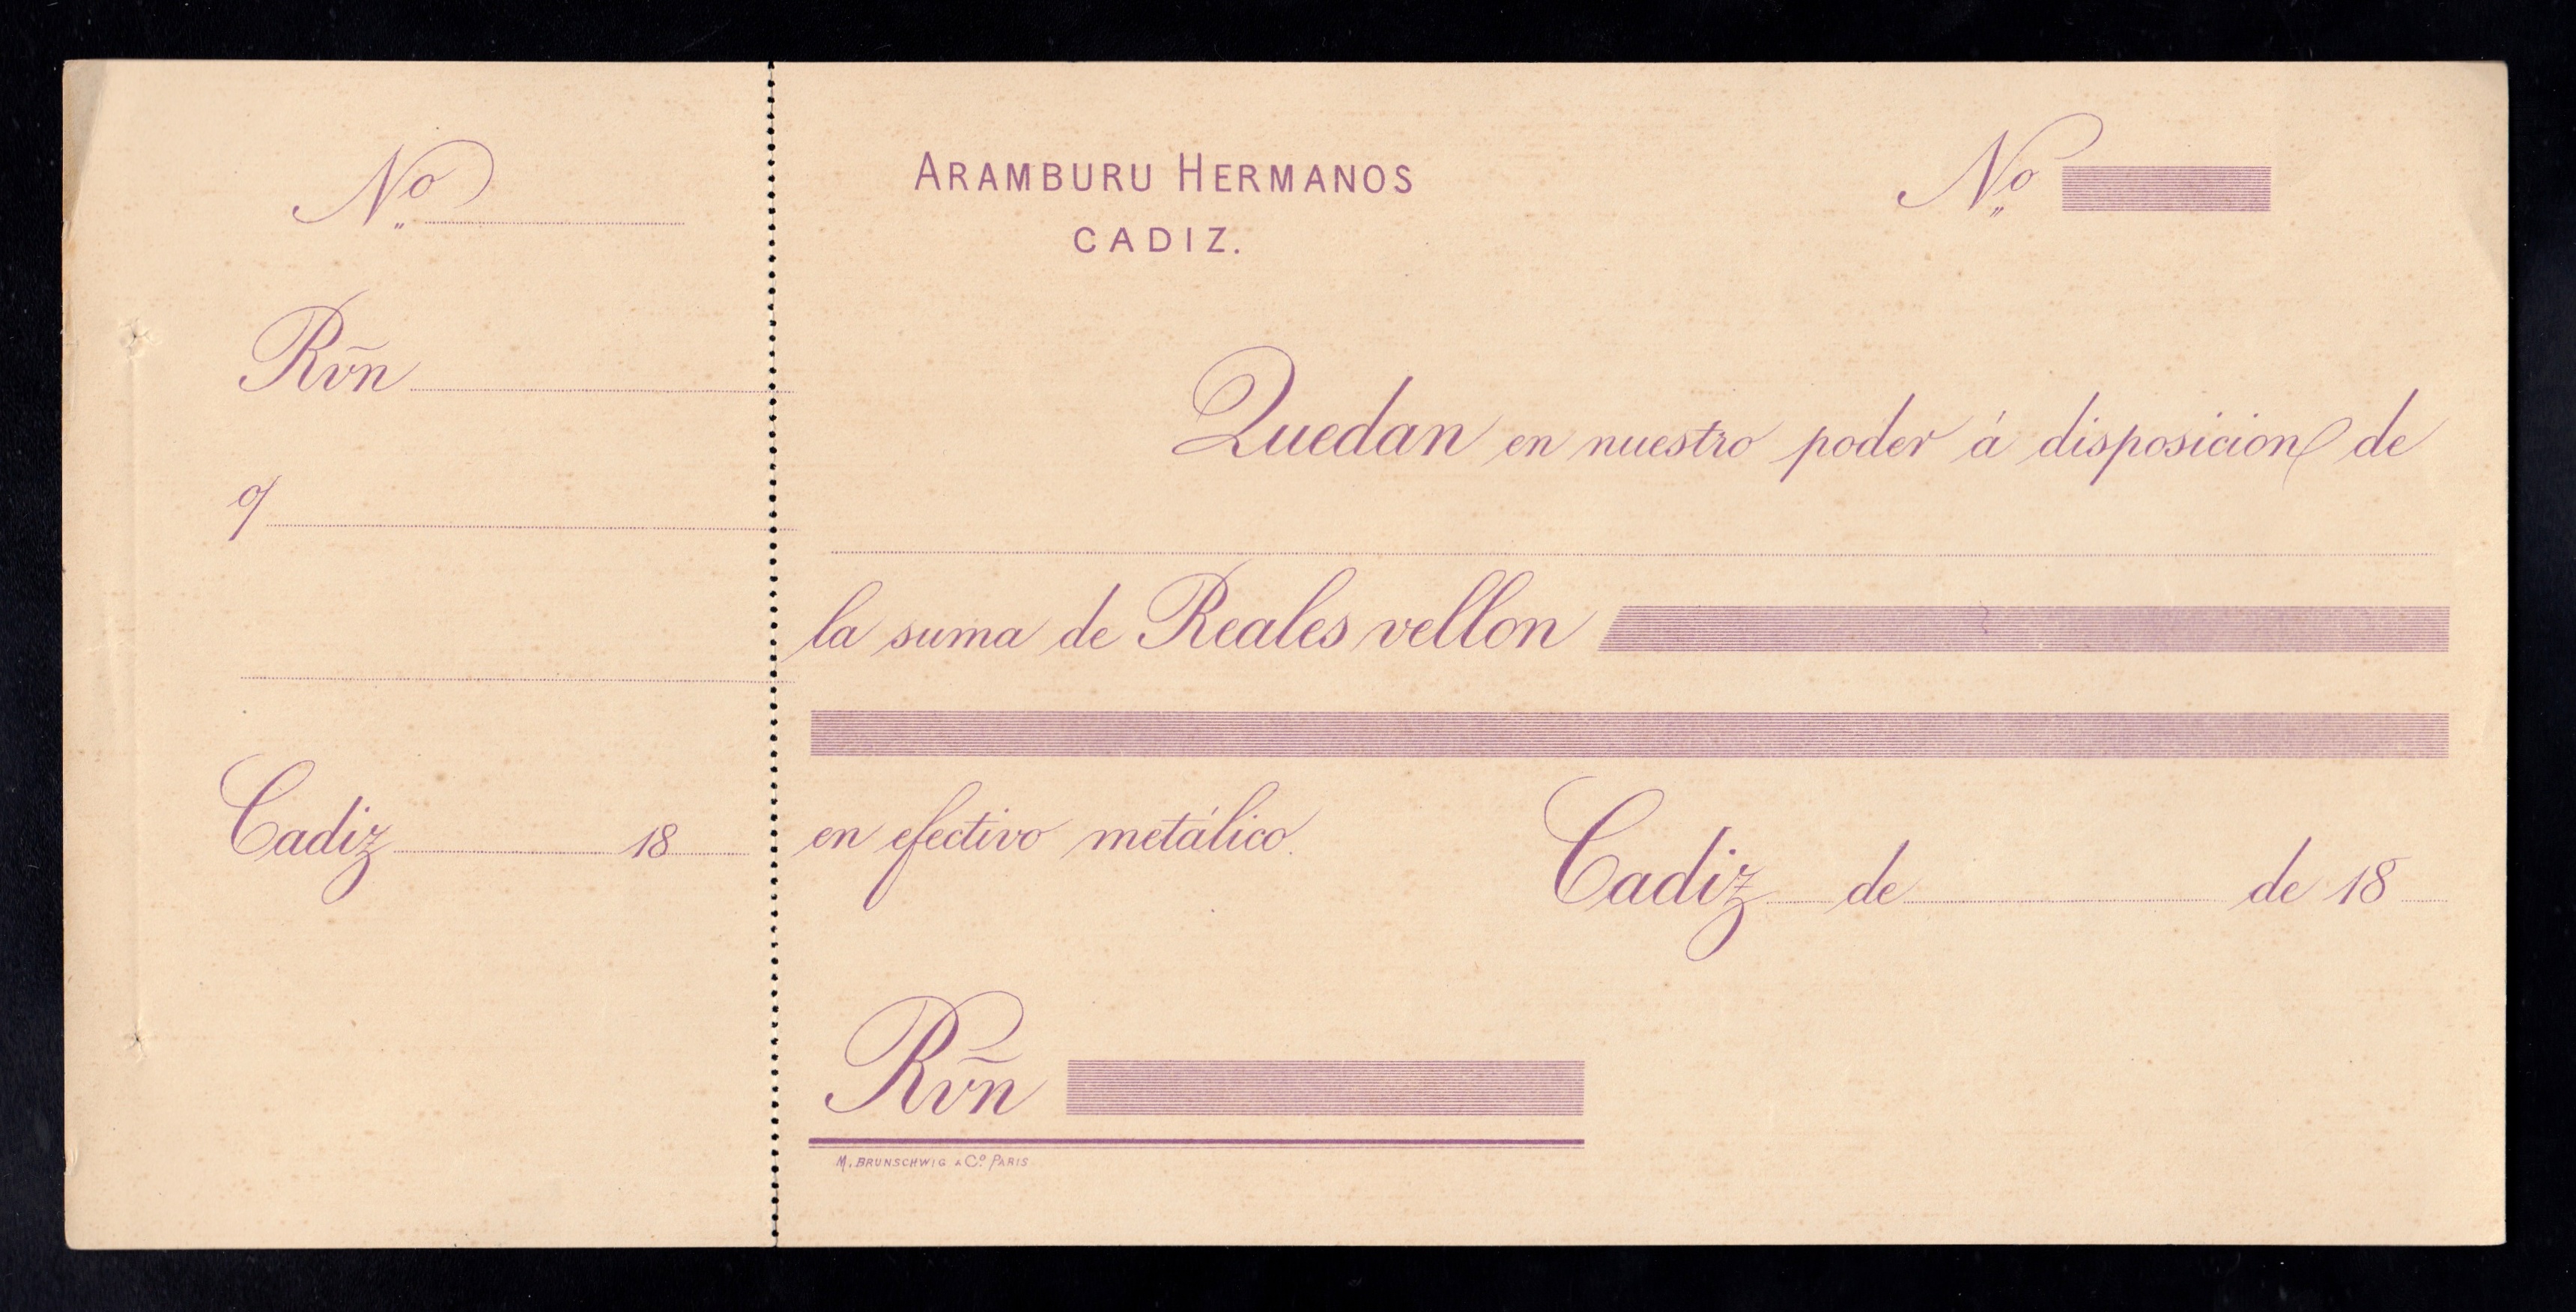 Nº
Rvñ
o/
Cadiz 18
ARAMBURU HERMANOS
CADIZ.
Nº
Quedan en nuestro poder á disposicion de
la suma de Reales vellon
en efectivo metálico.
Cadiz de de 18
Rvñ
M. BRUNSCHWIG & Cº PARIS